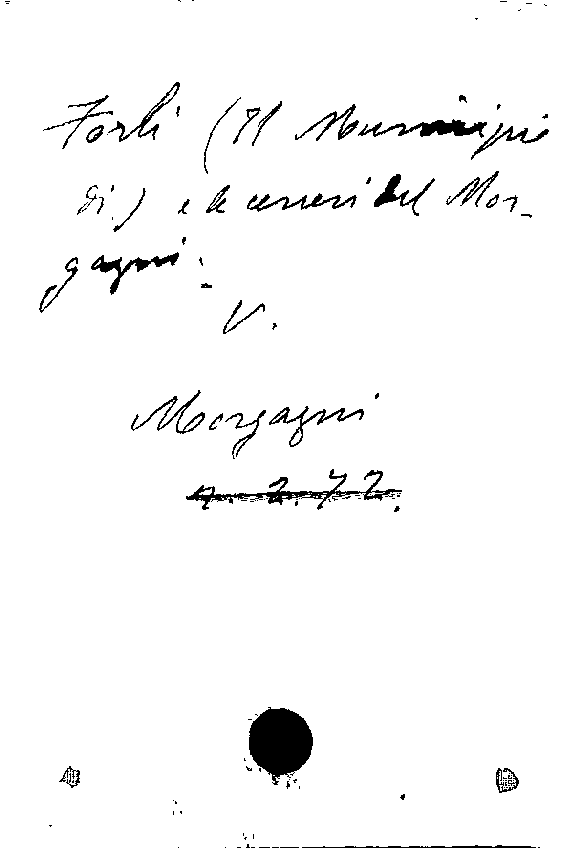 Forlì (Il Municipio
di) e le ceneri del Mor-
gagni.
V.
Morgagni